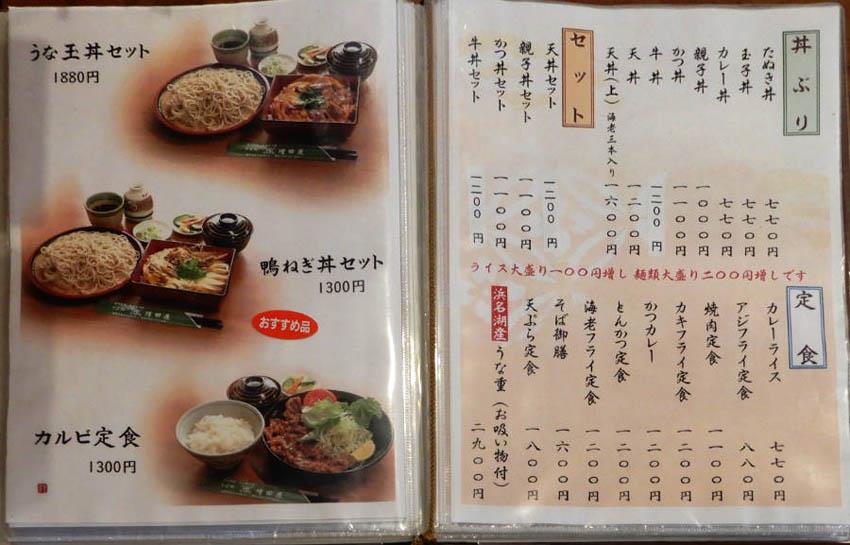 うな玉丼セット
1880円
増田屋
鴨ねぎ丼セット
1300円
増田屋
おすすめ品
カルビ定食
1300円
増田屋
丼ぶり
たぬき丼 七七〇円
玉子丼 七七〇円
カレー丼 七七〇円
親子丼 一〇〇〇円
かつ丼 一一〇〇円
牛丼 一二00円
天丼 一二〇〇円
天丼(上)海老三本入り 一六〇〇円
セット
天丼セット 一二00円
親子丼セット 一一〇〇円
かつ丼セット 一一〇〇円
牛丼セット 一二00円
ライス大盛り一〇〇円増し 麺類大盛り二〇〇円増しです
定食
カレーライス 七七〇円
アジフライ定食 八八〇円
焼肉定食 一一〇〇円
カキフライ定食 一二〇〇円
かつカレー 一二〇〇円
とんかつ定食 一二〇〇円
海老フライ定食 一二〇〇円
そば御膳 一六〇〇円
天ぷら定食 一八〇〇円
浜名湖産うな重(お吸い物付) 二九〇〇円